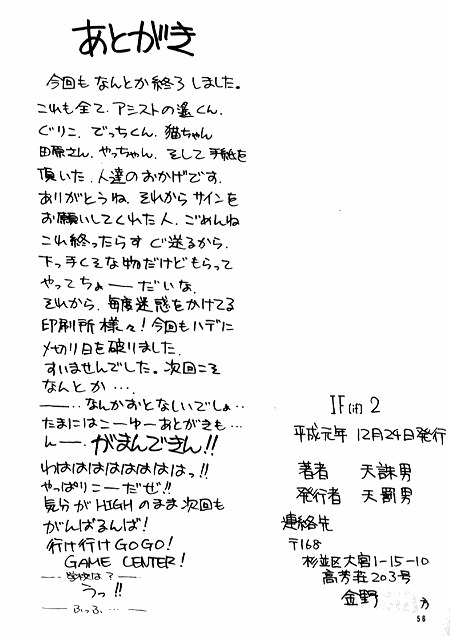 あとがき
今回も なんとか終了しました。
これも全て、アシストの遙くん、
ぐりこ、でっちくん、猫ちゃん
田原さん、やっちゃん、そして手紙を
頂いた、人達のおかげです。
ありがとうね、それからサインを
お願いしてくれた人、ごめんね
これ終ったらすぐ送るから、
下っ手くそな物だけどもらって
やってちょーーだいな、
それから、毎度迷惑をかけてる
印刷所様々！今回もハデに
〆切り日を破りました、
すいませんでした。次回こそ
なんとか…、
――‥なんかおとなしいでしょ‥
たまにはこーゆーあとがきも…
んー、がまんできん!!
わははははははははっ!!
やっぱりこーだぜ!!
気分がHIGHのまま次回も
がんばるんば！
行け行けGOGO！
GAME CENTER！
――学校は？――
うっ!!
――ふっふ…――
IF(if)2
平成元年 12月24日発行
著者 天誅男
発行者 天罰男
連絡先
〒168
杉並区大宮1-15-10
高芳荘203号
金野 方
56